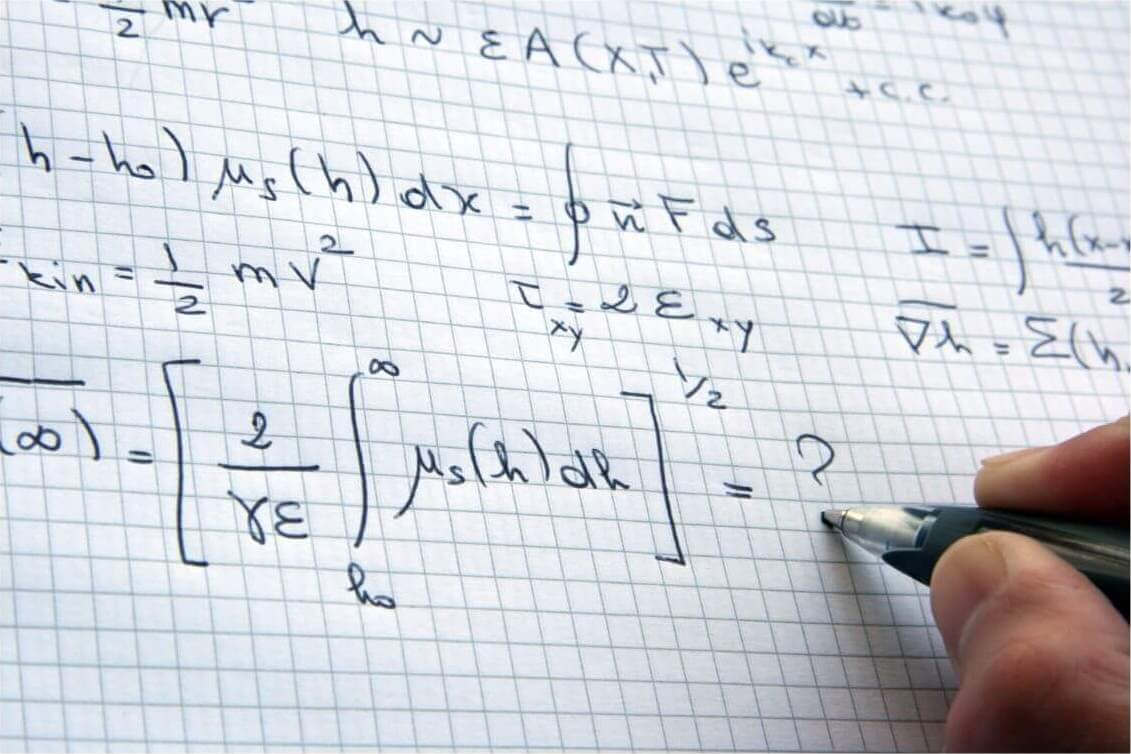 1/2 mr
h ~ εA(X,T) e^{ik_c x} + c.c.
h - h₀) μₛ(h) dx = ∮ n⃗ F ds
I = ∫ h(x-
2
kin = 1/2 mV²
τ_xy = 2 ε_xy
∇h = Σ(h,
(∞) = [2/γε ∫_{h₀}^{∞} μₛ(h)dh]^{1/2} = ?